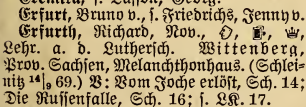 Erfurt, Bruno v., s. Friedrichs, Jenny v.
Erfurth, Richard, Nov.,
Lehr. a. d. Luthersch. Wittenberg,
Prov. Sachsen, Melanchthonhaus. (Schlei=
nitz 14/9 69.) V: Vom Joche erlöst, Sch. 14.
Die Russenfalle, Sch. 16; s. LK. 17.